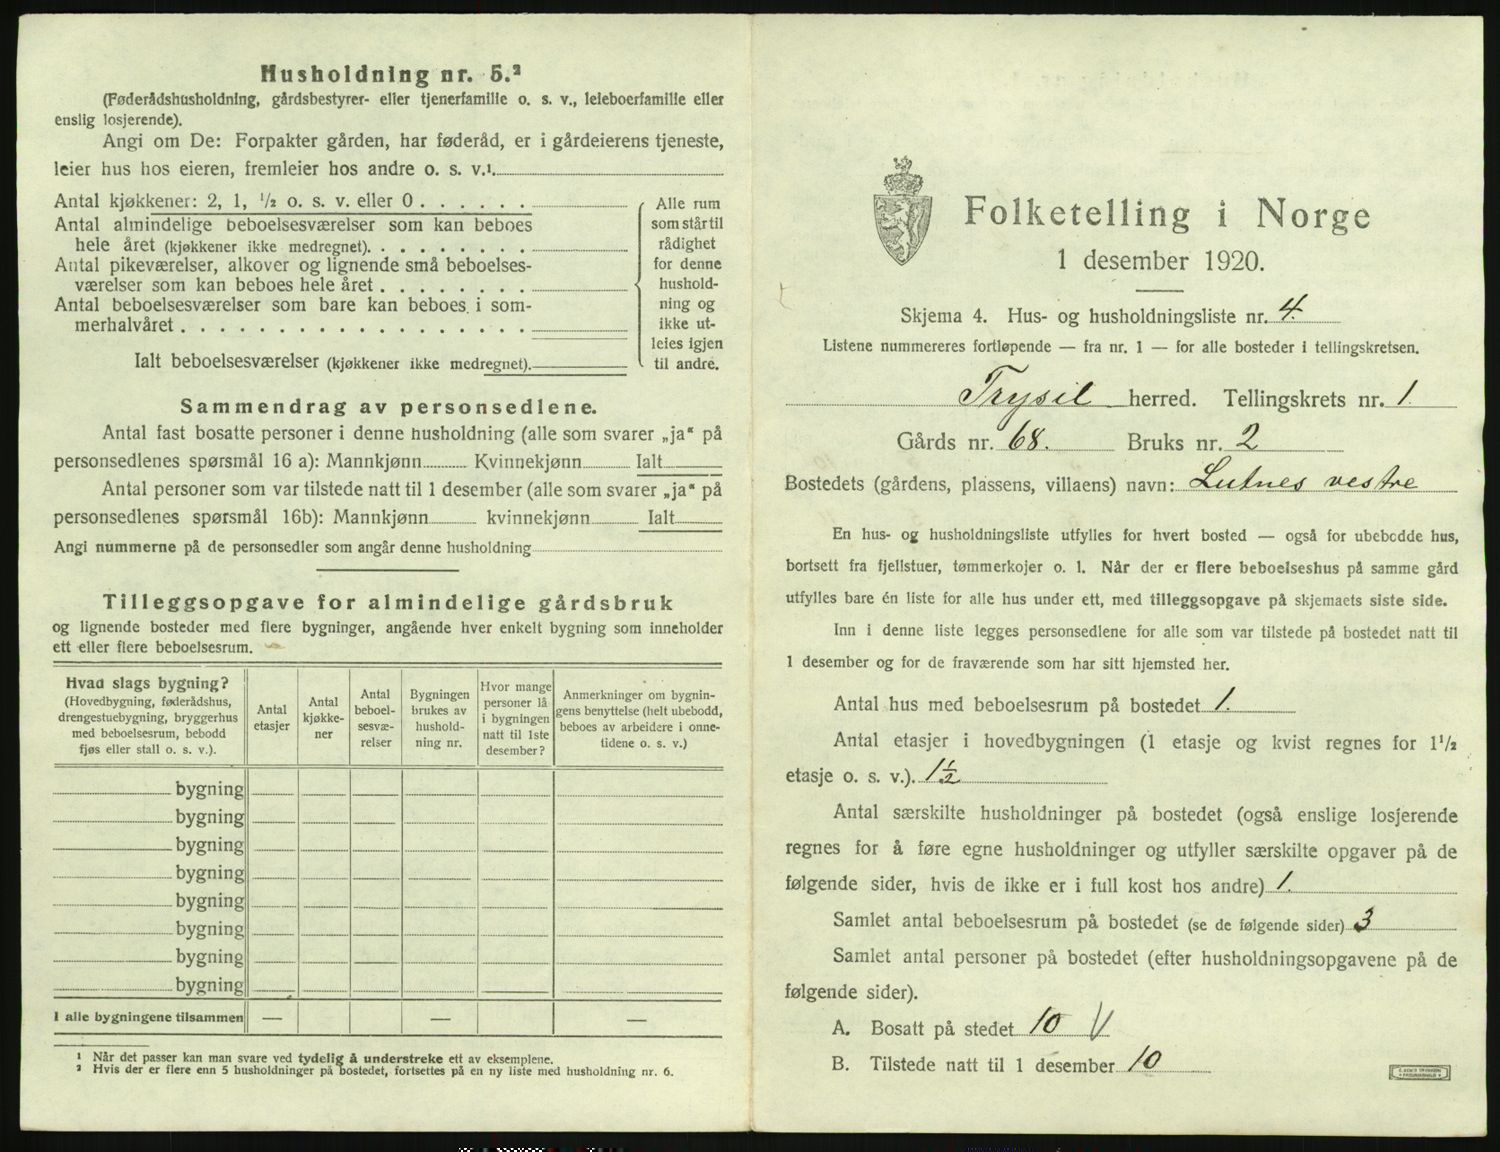 Husholdning nr. 5.²
(Føderådshusholdning, gårdsbestyrer- eller tjenerfamilie o. s. v., leieboerfamilie eller
enslig losjerende).
Angi om De: Forpakter gården, har føderåd, er i gårdeierens tjeneste,
leier hus hos eieren, fremleier hos andre o. s. v.¹
Antal kjøkkener: 2, 1, ½ o. s. v. eller 0 . . . . . .
Antal almindelige beboelsesværelser som kan beboes
hele året (kjøkkener ikke medregnet). . . . . . . . .
Antal pikeværelser, alkover og lignende små beboelses-
værelser som kan beboes hele året . . . . . . . .
Antal beboelsesværelser som bare kan beboes i som-
merhalvåret . . . . . . . . . . . . . . . . . .
Ialt beboelsesværelser (kjøkkener ikke medregnet).
Alle rum
som står til
rådighet
for denne
hushold-
ning og
ikke ut-
leies igjen
til andre.
Sammendrag av personsedlene.
Antal fast bosatte personer i denne husholdning (alle som svarer „ja“ på
personsedlenes spørsmål 16 a): Mannkjønn Kvinnekjønn Ialt
Antal personer som var tilstede natt til 1 desember (alle som svarer „ja“ på
personsedlenes spørsmål 16b): Mannkjønn kvinnekjønn Ialt
Angi nummerne på de personsedler som angår denne husholdning
Tilleggsopgave for almindelige gårdsbruk
og lignende bosteder med flere bygninger, angående hver enkelt bygning som inneholder
ett eller flere beboelsesrum.
Hvad slags bygning?
(Hovedbygning, føderådshus,
drengestuebygning, bryggerhus
med beboelsesrum, bebodd
fjøs eller stall o. s. v.).
Antal
etasjer
Antal
kjøkke-
ner
Antal
beboel-
sesvæ-
relser
Bygningen
brukes av
hushold-
ning nr.
Hvor mange
personer lå
i bygningen
natt til 1ste
desember?
Anmerkninger om bygnin-
gens benyttelse (helt ubebodd,
beboes av arbeidere i onne-
tidene o. s. v.)
bygning
bygning
bygning
bygning
bygning
bygning
bygning
bygning
I alle bygningene tilsammen — — —
¹ Når det passer kan man svare ved tydelig å understreke ett av eksemplene.
² Hvis der er flere enn 5 husholdninger på bostedet, fortsettes på en ny liste med husholdning nr. 6.
Folketelling i Norge
1 desember 1920.
Skjema 4. Hus- og husholdningsliste nr. 4.
Listene nummereres fortløpende — fra nr. 1 — for alle bosteder i tellingskretsen.
Trysil herred. Tellingskrets nr. 1.
Gårds nr. 68. Bruks nr. 2
Bostedets (gårdens, plassens, villaens) navn: Lutnes vestre
En hus- og husholdningsliste utfylles for hvert bosted — også for ubebodde hus,
bortsett fra fjellstuer, tømmerkojer o. l. Når der er flere beboelseshus på samme gård
utfylles bare én liste for alle hus under ett, med tilleggsopgave på skjemaets siste side.
Inn i denne liste legges personsedlene for alle som var tilstede på bostedet natt til
1 desember og for de fraværende som har sitt hjemsted her.
Antal hus med beboelsesrum på bostedet 1.
Antal etasjer i hovedbygningen (1 etasje og kvist regnes for 1½
etasje o. s. v.). 1½
Antal særskilte husholdninger på bostedet (også enslige losjerende
regnes for å føre egne husholdninger og utfyller særskilte opgaver på de
følgende sider, hvis de ikke er i full kost hos andre) 1.
Samlet antal beboelsesrum på bostedet (se de følgende sider) 3
Samlet antal personer på bostedet (efter husholdningsopgavene på de
følgende sider).
A. Bosatt på stedet 10 V
B. Tilstede natt til 1 desember 10